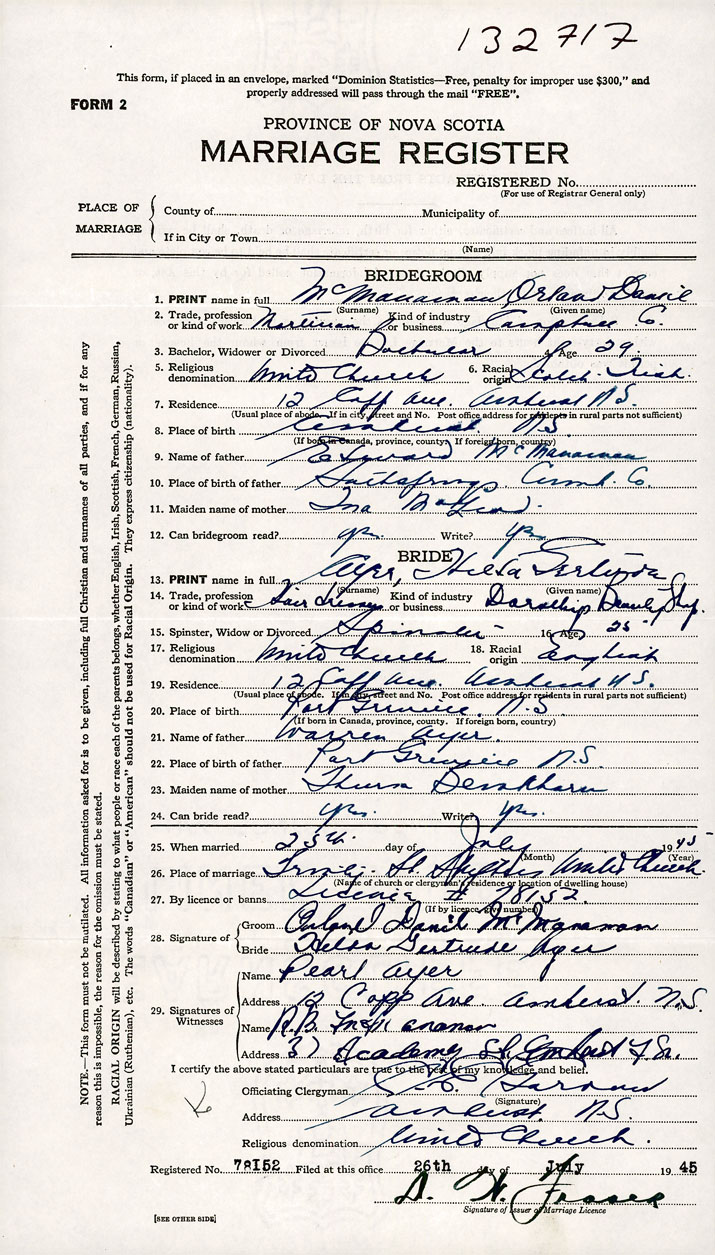 132717
This form, if placed in an envelope, marked "Dominion Statistics—Free, penalty for improper use $300," and
properly addressed will pass through the mail "FREE".
FORM 2
PROVINCE OF NOVA SCOTIA
MARRIAGE REGISTER
REGISTERED No.
(For use of Registrar General only)
PLACE OF MARRIAGE
County of Municipality of
If in City or Town
(Name)
BRIDEGROOM
1. PRINT name in full McManaman Orland Daniel
(Surname) (Given name)
2. Trade, profession or kind of work Kind of industry or business Co.
3. Bachelor, Widower or Divorced Bachelor 4. Age 29
5. Religious denomination United Church 6. Racial origin Scotch-Irish.
7. Residence 12 Copp Ave. Amherst N.S.
(Usual place of abode. If in city, street and No. Post office address for residents in rural parts not sufficient)
8. Place of birth Amherst N.S.
(If born in Canada, province, county. If foreign born, country)
9. Name of father Edward McManaman
10. Place of birth of father Cumb. Co
11. Maiden name of mother Ina McLeod
12. Can bridegroom read? yes. Write? yes.
BRIDE
13. PRINT name in full Ayer, Hilda Gertrude
(Surname) (Given name)
14. Trade, profession or kind of work Hairdresser Kind of industry or business Dorothy's Beauty Shop.
15. Spinster, Widow or Divorced Spinster 16. Age 25
17. Religious denomination United Church 18. Racial origin English
19. Residence 12 Copp Ave. Amherst N.S.
(Usual place of abode. If in city, street and No. Post office address for residents in rural parts not sufficient)
20. Place of birth Port Greville N.S.
(If born in Canada, province, county. If foreign born, country)
21. Name of father Warren Ayer
22. Place of birth of father Port Greville N.S.
23. Maiden name of mother
24. Can bride read? yes. Write? yes.
25. When married 25th day of July 1945
(Month) (Year)
26. Place of marriage Trinity-St. Stephens United Church.
(Name of church or clergyman's residence or location of dwelling house)
27. By licence or banns License # 78152
(If by licence, give number)
28. Signature of
Groom Orland Daniel McManaman
Bride Hilda Gertrude Ayer
29. Signatures of Witnesses
Name Pearl Ayer
Address 12 Copp Ave. Amherst. N.S.
Name R.B. McManaman
Address 37 Academy St. Amherst N.S.
I certify the above stated particulars are true to the best of my knowledge and belief.
Officiating Clergyman
(Signature)
Address Amherst N.S.
Religious denomination United Church.
Registered No. 78I52 Filed at this office 26th day of July 19 45
D. W. Fraser
Signature of Issuer of Marriage Licence
[SEE OTHER SIDE]
NOTE.—This form must not be mutilated. All information asked for is to be given, including full Christian and surnames of all parties, and if for any
reason this is impossible, the reason for the omission must be stated.
RACIAL ORIGIN will be described by stating to what people or race each of the parents belongs, whether English, Irish, Scottish, French, German, Russian,
Ukrainian (Ruthenian), etc. The words "Canadian" or "American" should not be used for Racial Origin. They express citizenship (nationality).